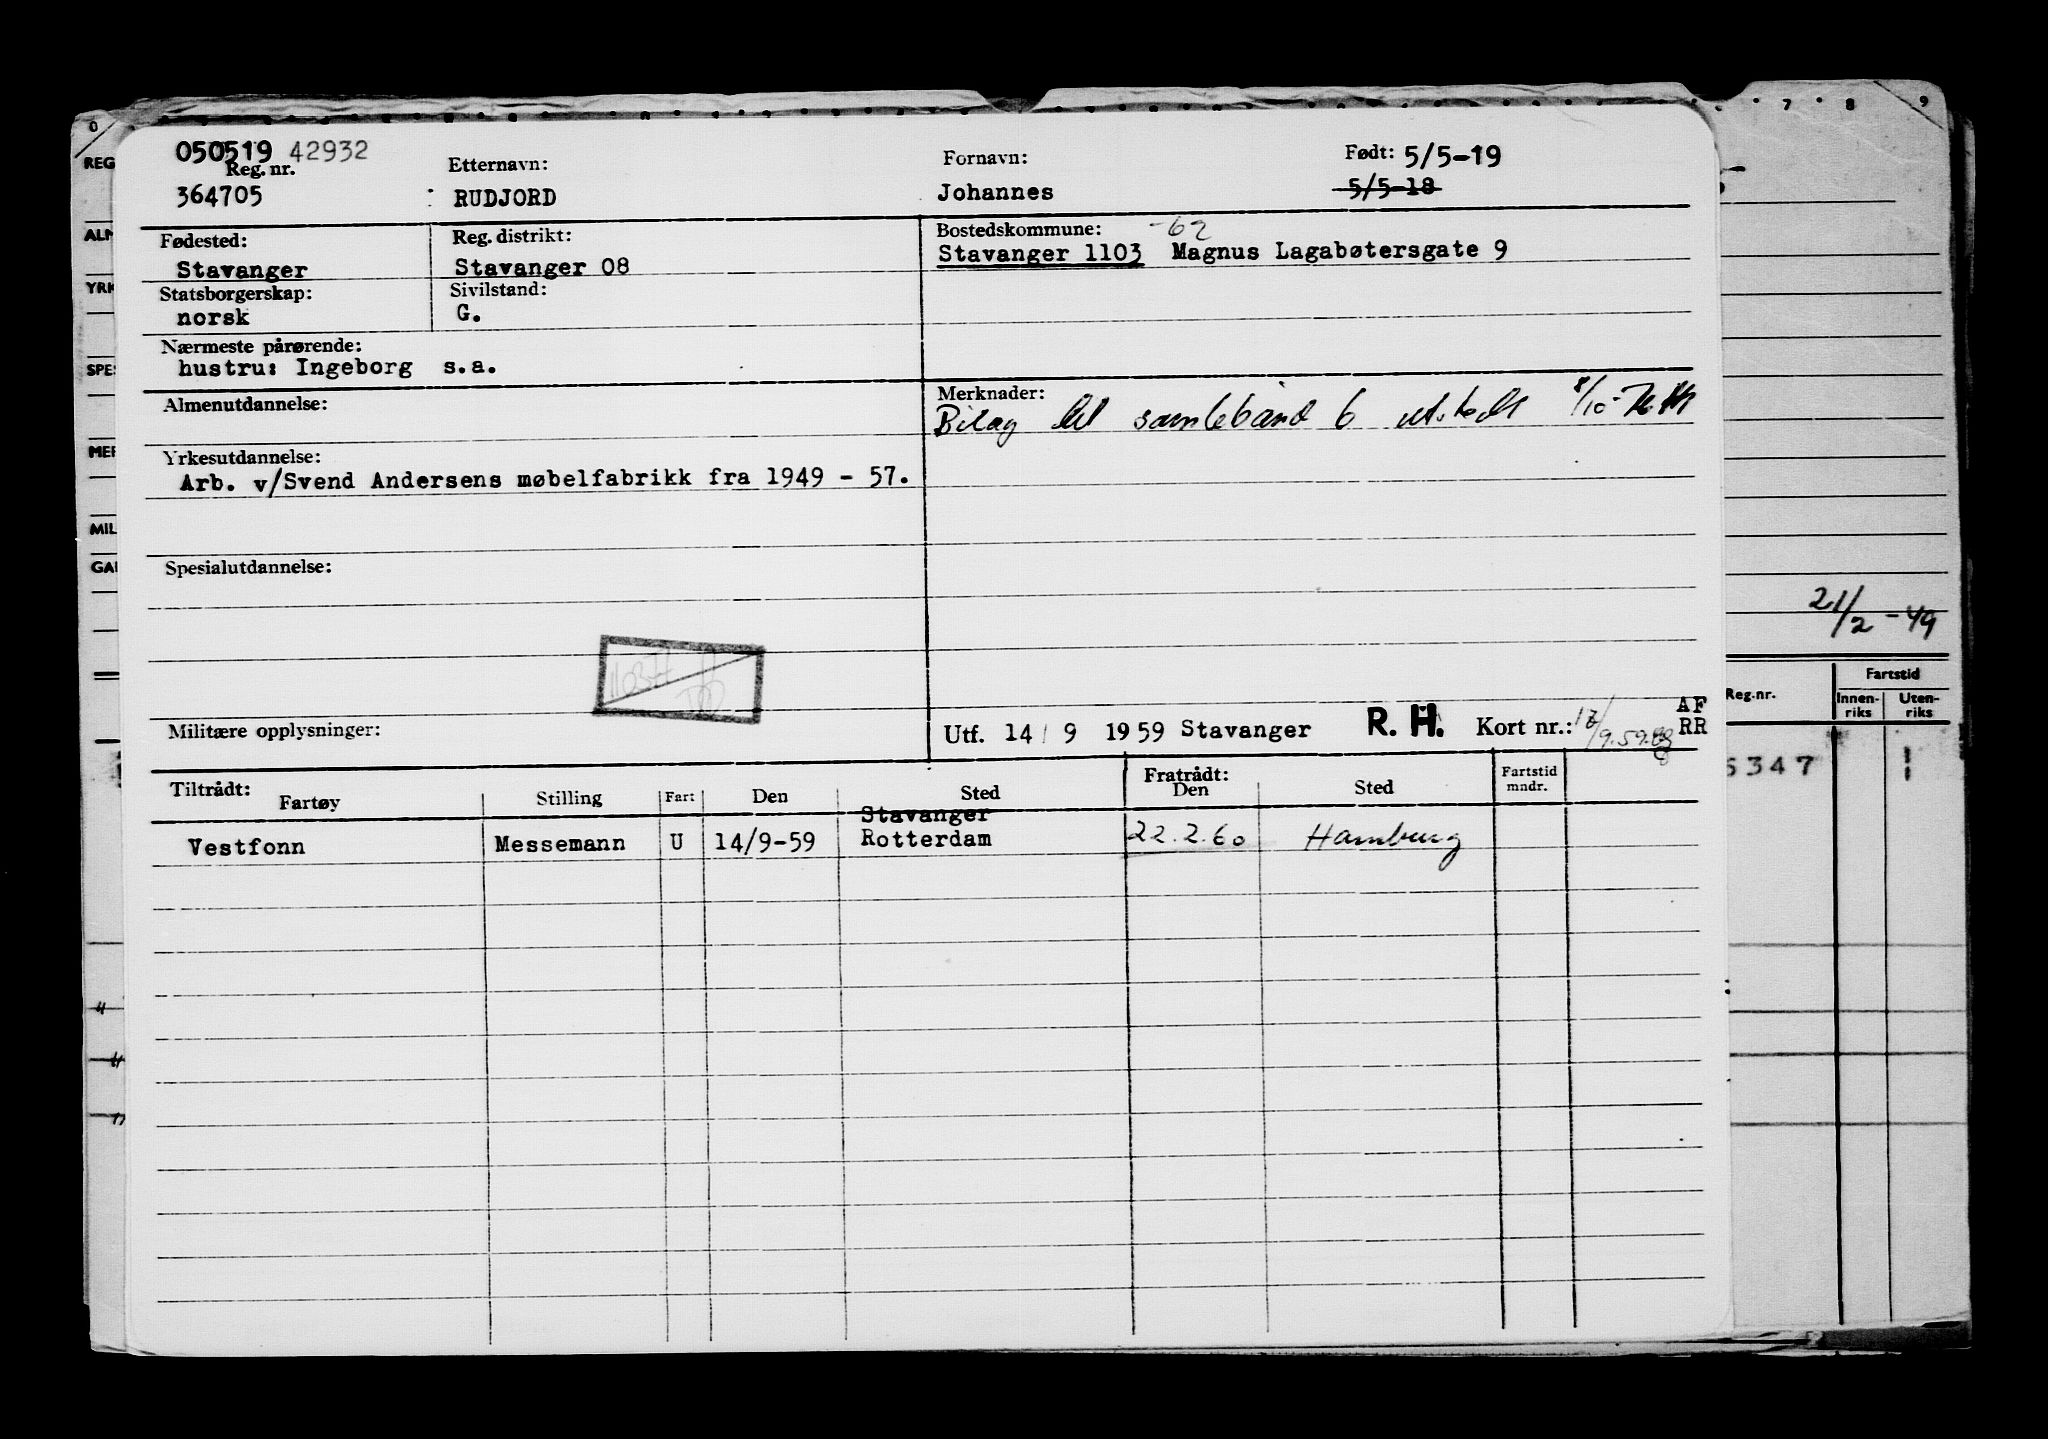 0 7 8 9
050519 42932
Reg. nr.
364705
Etternavn:
RUDJORD
Fornavn:
Johannes
Født: 5/5-19
5/5-18
Fødested:
Stavanger
Reg. distrikt:
Stavanger 08
Bostedskommune: -62
Stavanger 1103 Magnus Lagabøtersgate 9
Statsborgerskap:
norsk
Sivilstand:
G.
Nærmeste pårørende:
hustru: Ingeborg s.a.
Almenutdannelse:
Merknader:
Bilag til samlebånd 6 utstedt 8/10-
Yrkesutdannelse:
Arb. v/Svend Andersens møbelfabrikk fra 1949 - 57.
Spesialutdannelse:
Militære opplysninger:
Utf. 14/9 1959 Stavanger R.H. Kort nr.: AF
RR
Tiltrådt:
Fartøy Stilling Fart Den Sted Fratrådt:
Den Sted Fartstid
mndr.
Stavanger
Vestfonn Messemann U 14/9-59 Rotterdam 22.2.60 Hamburg
REG
ALM
YRK
SPES
MER
MIL
GAR
21/2-49
Reg.nr. Fartstid
Innen-
riks Uten-
riks
5347